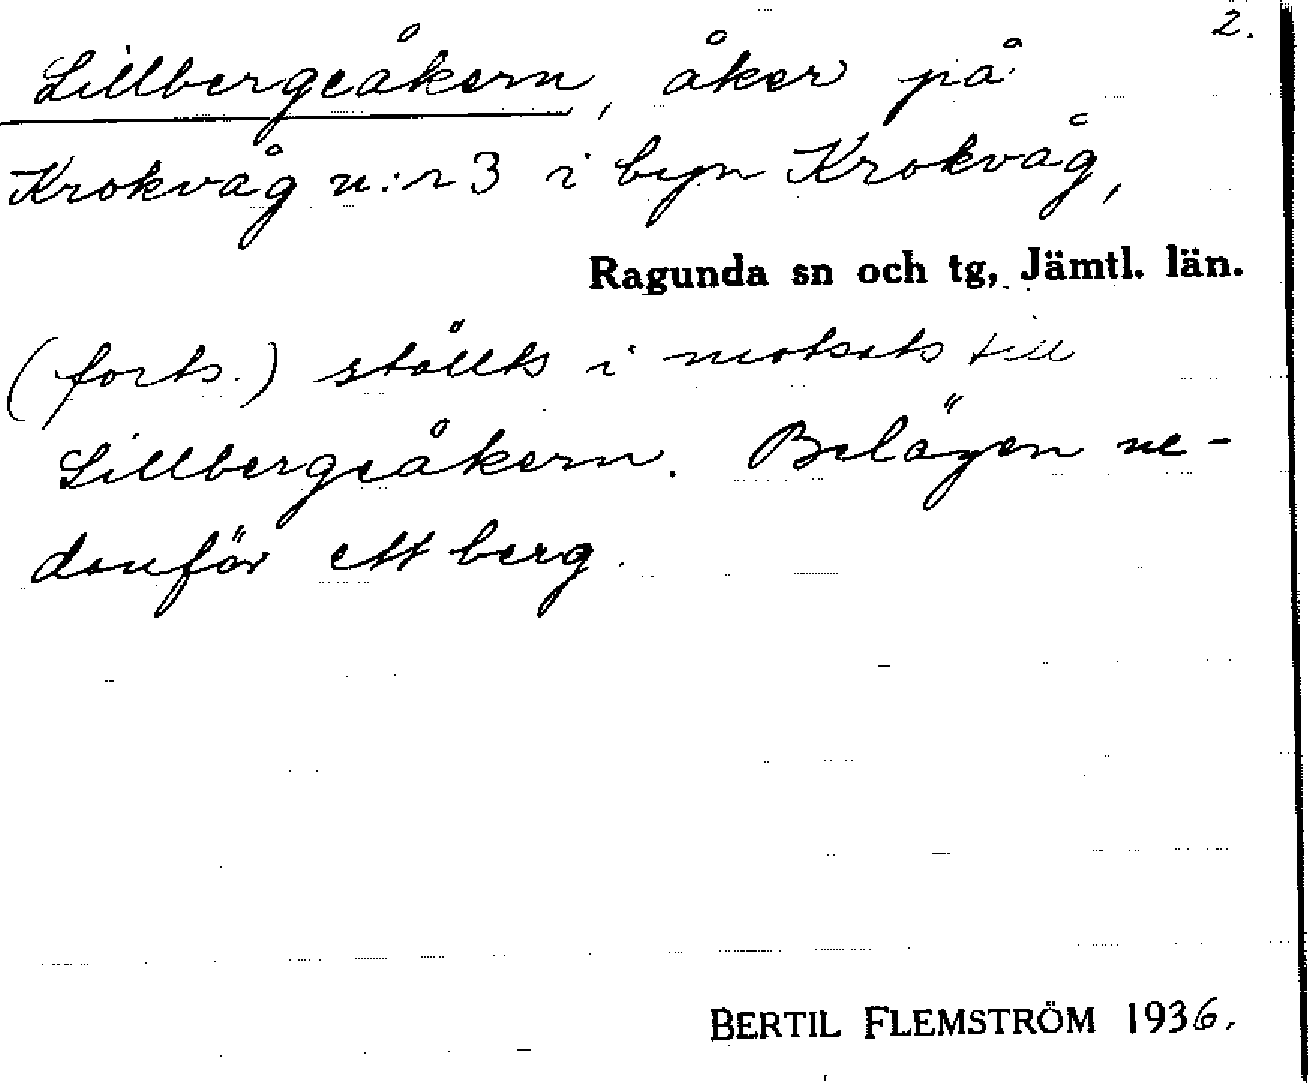 2.
Lillbergeåkern, åker på
Krokvåg n:r 3 i byn Krokvåg,
Ragunda sn och tg, Jämtl. län.
(forts.) ställts i motsats till
Lillbergeåkern. Belägen ne-
danför ett berg.
BERTIL FLEMSTRÖM 1936.